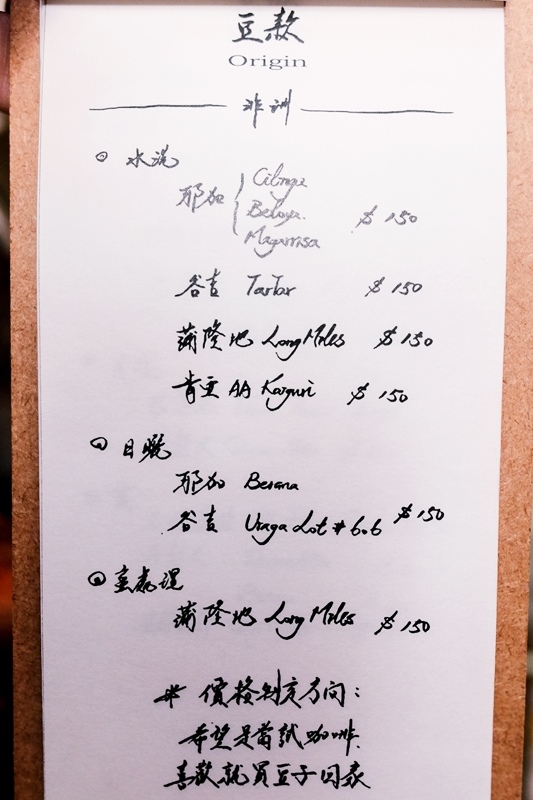 豆款
Origin
非洲
水洗
耶加
Beloya.
$150
谷吉 TarTar $150
蒲隆地 Long Miles $150
肯亞 AA $150
日曬
耶加 Berana
谷吉 Uraga Lot #606 $150
蜜處理
蒲隆地 Long Miles $150
* 價格制定方向：
希望是嘗試咖啡.
喜歡就買豆子回家